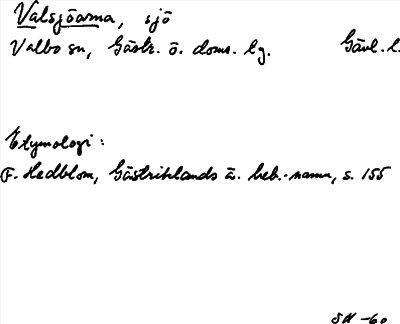 Valsjöarna, sjö
Valbo sn, Gästr. ö. doms. lg. Gävl. l.
Etymologi:
F. Hedblom, Gästriklands ä. beb.-namn, s. 155
SH -60